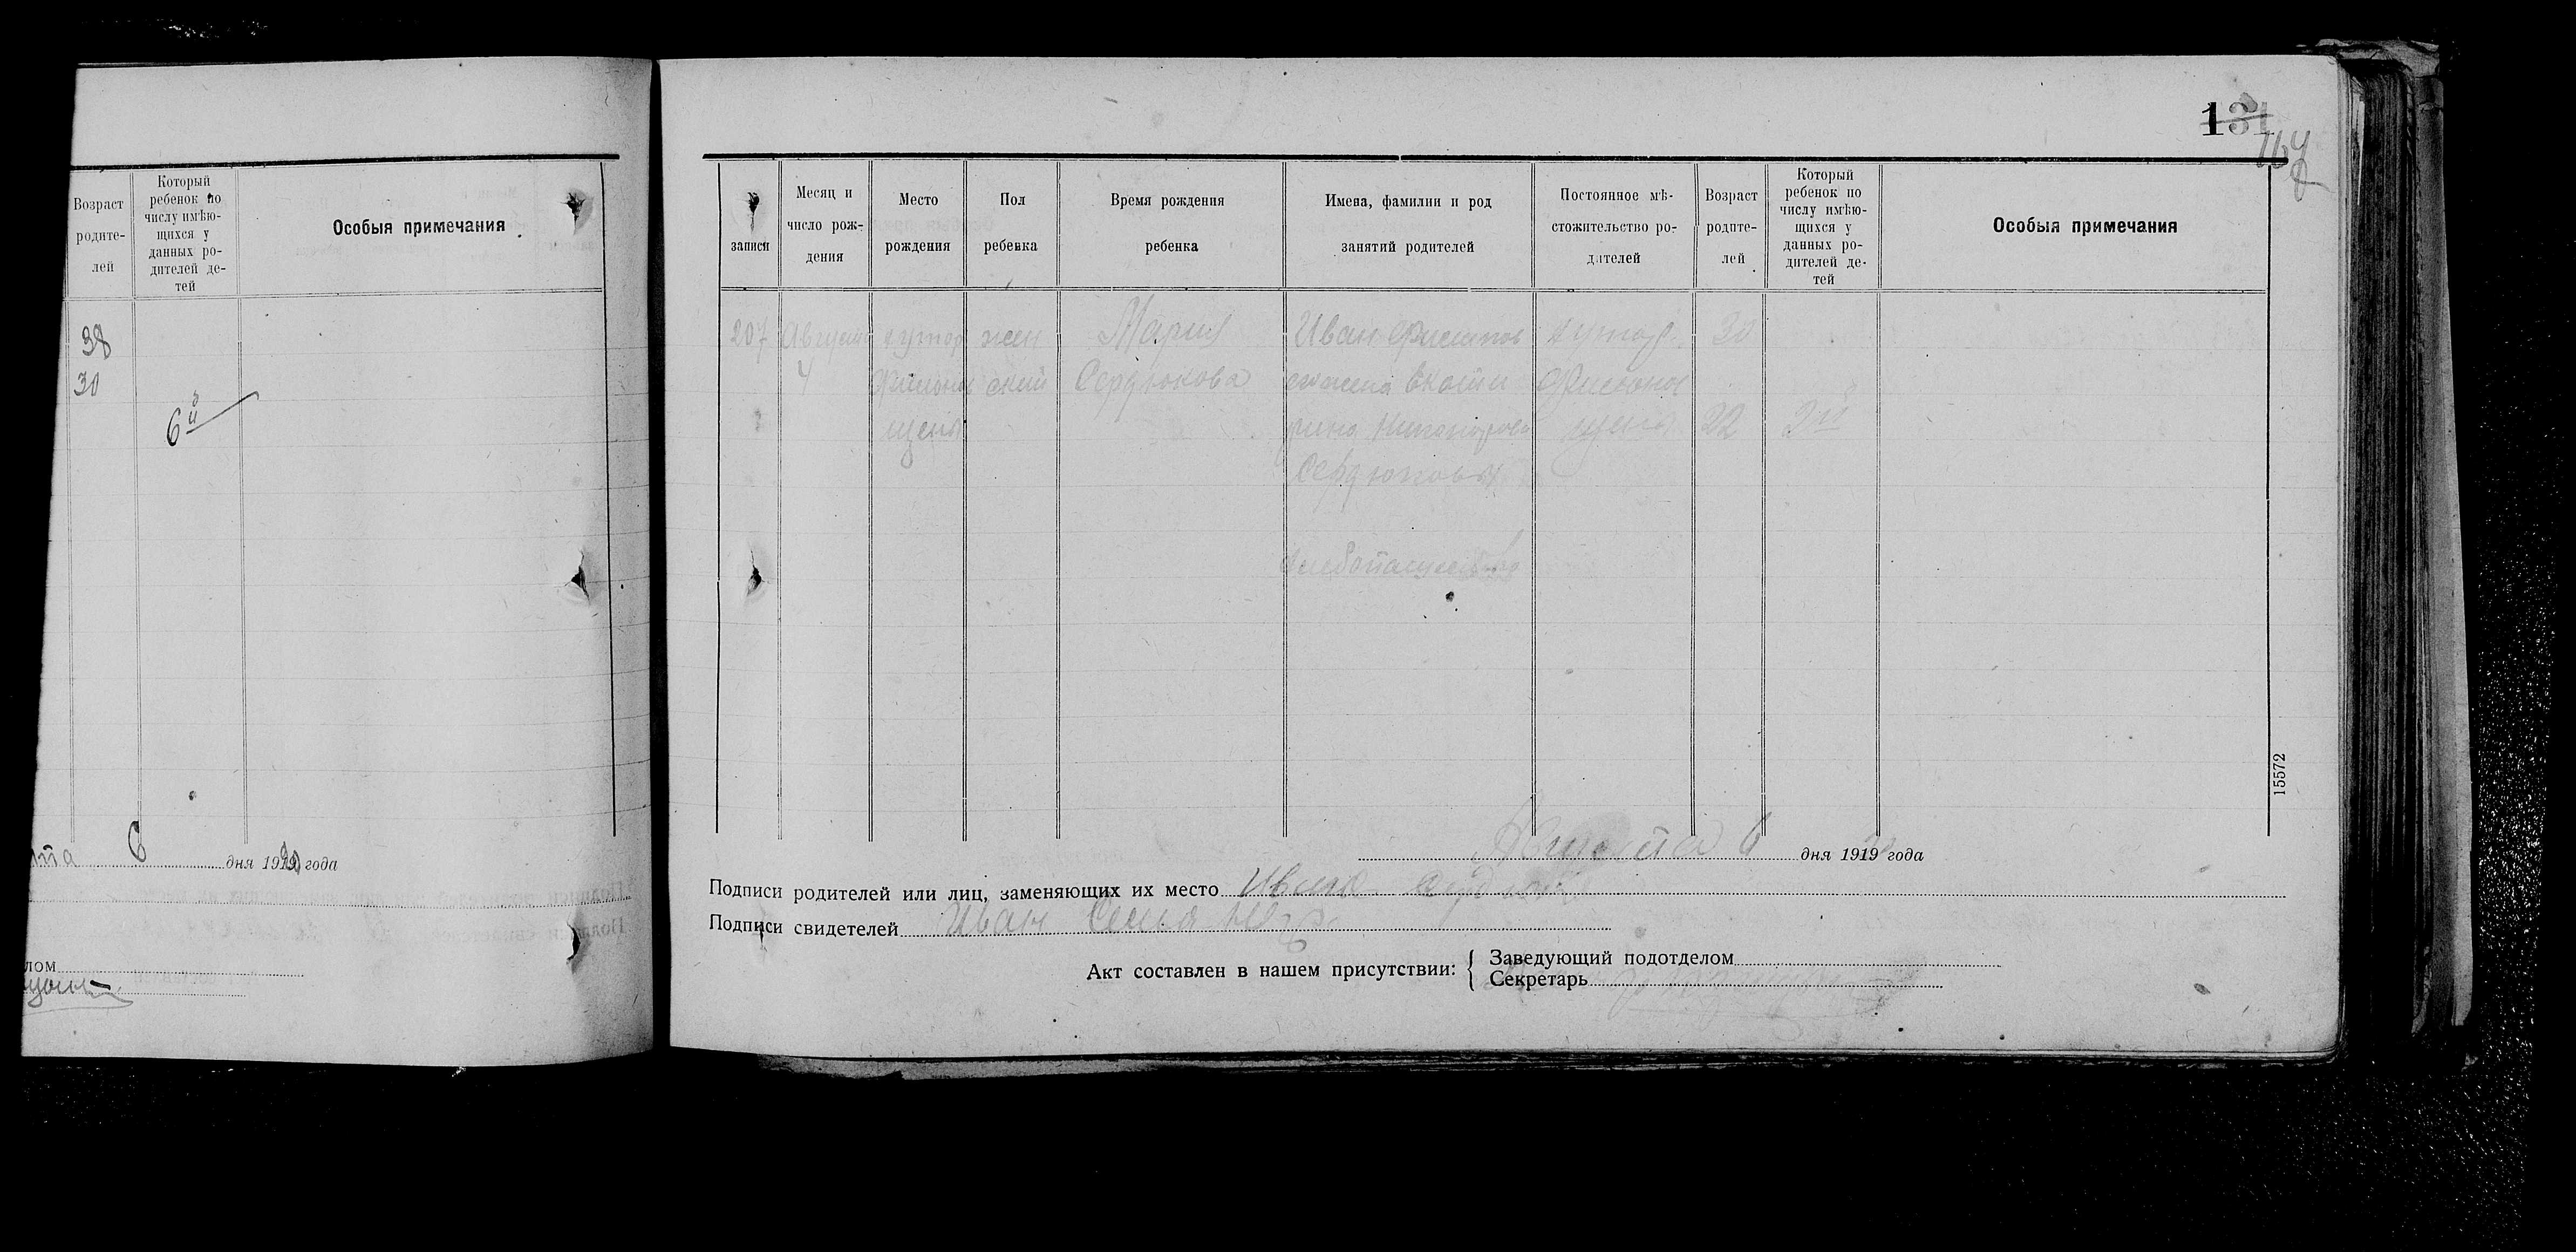 Возраст
родите-
лей
Который
ребенок по
числу имѣю-
щихся у
данных ро-
дителей де-
тей
Особыя примечания
38
30
6й
6 дня 1919 года
131
164
записи
Месяц и
число рож-
дения
Место
рождения
Пол
ребенка
Время рождения
ребенка
Имена, фамилии и род
занятий родителей
Постоянное мѣ-
стожительство ро-
дителей
Возраст
родите-
лей
Который
ребенок по
числу имѣю-
щихся у
данных ро-
дителей де-
тей
Особыя примечания
207
Августа
4
хутор
щена
жен
ский
Мария
Сердюкова
Иван Филипов
жена Екате
рина Никанорова
Сердюковы
хлебопашество
хутор
щена
30
22
2й
15572
Августа 6 дня 1919 года
Подписи родителей или лиц, заменяющих их место Иван
Подписи свидетелей Иван
Акт составлен в нашем присутствии:
Заведующий подотделом
Секретарь
лом